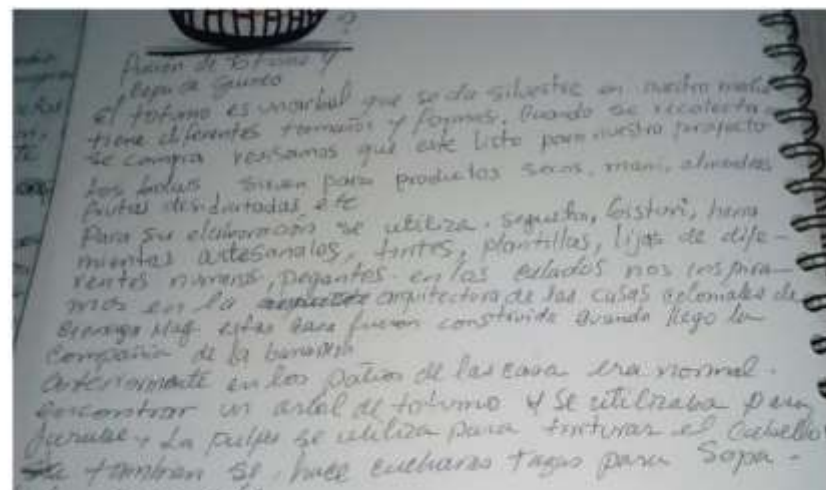 ?
fusion de totumo y
cepa de Guineo
el totumo es un arbol que se da silvestre en nuestro
tiene diferentes tamaños y formas. Cuando se recolecta o
se compra revisamos que este listo para nuestro proyecto
Los sirven para productos secos, mani, almendras
frutas etc
Para su elaboración se utiliza, segueta, bisturi, herra
mientas artesanales, tintes, plantillas, lijas de dife-
rentes pegantes. en los calados nos inspira-
mos en la arquitectura de las casas coloniales de
Cienaga Mag. estas casa fueron construida cuando llego la
Compañia de la
anteriormente en los patios de las casa era normal.
encontrar un arbol de totumo y se utilizaba para
La pulpa se utiliza para tinturar el Cabello
tambien se hace cucharas tazas para Sopa.